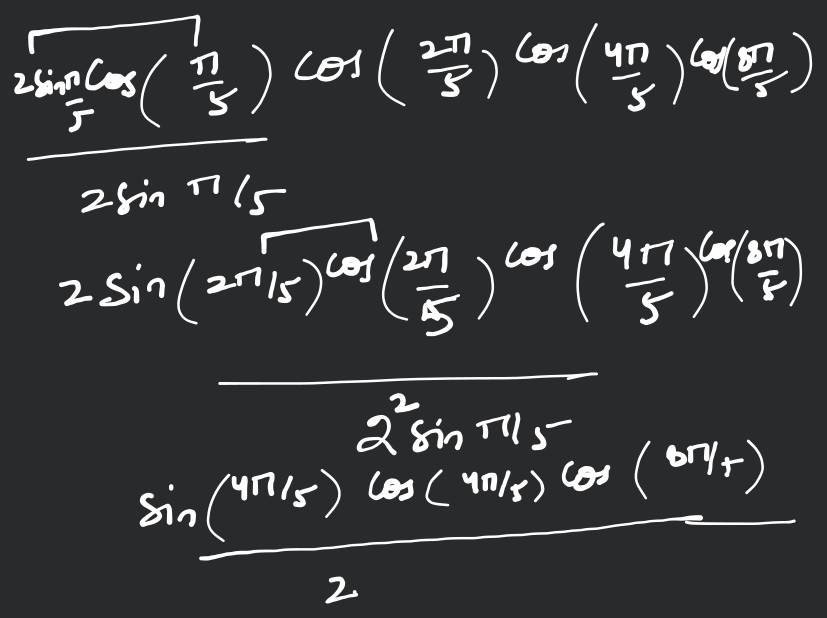 2sin π/5 cos(π/5) cos(2π/5) cos(4π/5) cos(8π/5)
2sin π/5
2sin(2π/5) cos(2π/5) cos(4π/5) cos(8π/5)
2² sin π/5
sin(4π/5) cos(4π/5) cos(8π/5)
2